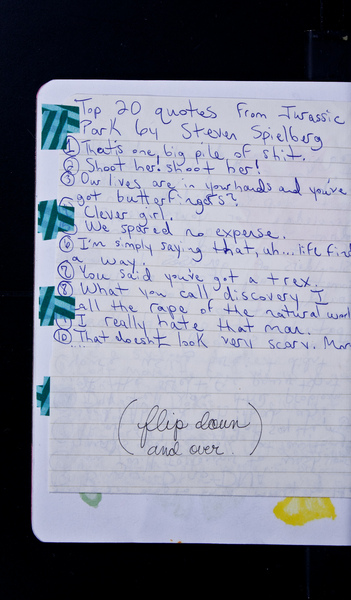 Top 20 quotes From Jurassic
Park by Steven Spielberg
① That's one big pile of shit.
② Shoot her! shoot her!
③ Our lives are in your hands and you've
got butterfingers?
Clever girl.
We spared no expense.
⑥ I'm simply saying that, uh... life find
a way.
⑦ You said you've got a t rex.
⑧ What you call discovery I
all the rape of the natural worl
I really hate that man.
⑩ That doesn't look very scary. Mor
...
(flip down
and over.)